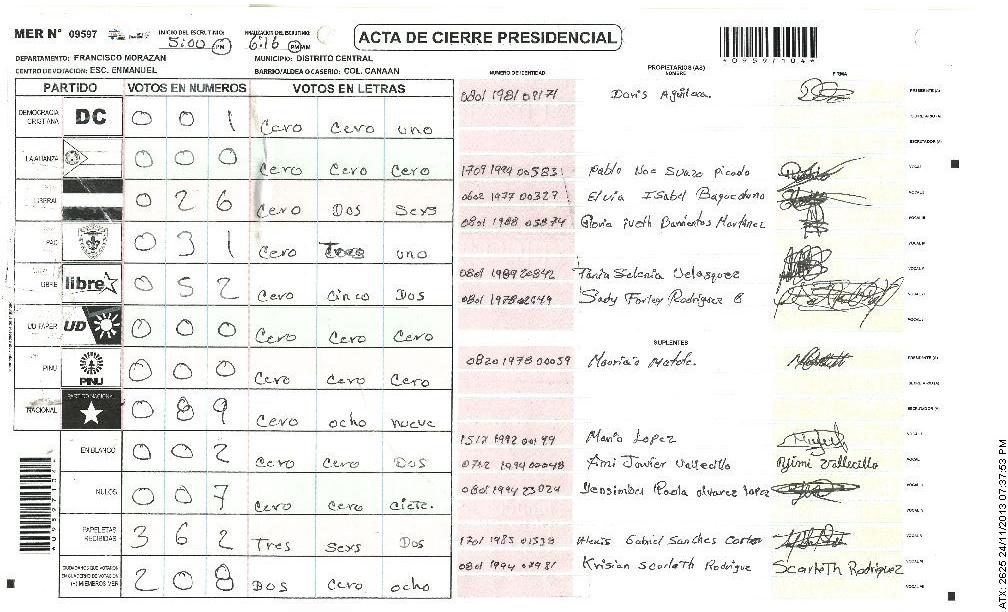 MER N° 09597 INICIO DEL ESCRUTINIO: 5:00 PM FINALIZACION DEL ESCRUTINIO: 6:16 PM ACTA DE CIERRE PRESIDENCIAL *09597104*
DEPARTAMENTO: FRANCISCO MORAZAN MUNICIPIO: DISTRITO CENTRAL
CENTRO DE VOTACION: ESC. ENMANUEL BARRIO/ALDEA O CASERIO: COL. CANAAN
PARTIDO VOTOS EN NUMEROS VOTOS EN LETRAS
DEMOCRACIA CRISTIANA DC 0 0 1 Cero Cero uno
LA ALIANZA 0 0 0 Cero Cero Cero
LIBERAL 0 2 6 Cero Dos Seys
PAC 0 3 1 Cero uno
LIBRE libre 0 5 2 Cero Cinco Dos
UD FAPER UD 0 0 0 Cero Cero Cero
PINU PINU 0 0 0 Cero Cero Cero
NACIONAL PARTIDO NACIONAL 0 8 9 Cero ocho nueve
EN BLANCO 0 0 2 Cero Cero Dos
NULOS 0 0 7 Cero Cero ciete.
PAPELETAS RECIBIDAS 3 6 2 Tres Seys Dos
CIUDADANOS QUE VOTARON EN CUADERNO DE VOTACION (+) MIEMBROS MER 2 0 8 Dos Cero ocho
NUMERO DE IDENTIDAD PROPIETARIOS (AS) NOMBRE FIRMA
Doris Aguilera. PRESIDENTE (A)
SECRETARIO (A)
ESCRUTADOR (A)
1709 1994 00583 Pablo Noe Suazo Picado VOCAL I
0602 1977 00327 Elvia Isabel Baquedano VOCAL II
0801 1988 05874 Gloria Iveth Barrientos Martinez VOCAL III
VOCAL IV
0801 1989 20842 Tania Selenia Velasquez VOCAL V
0801 1978 02649 Sady Farley Rodriguez B VOCAL VI
SUPLENTES
0820 1978 00059 Mauricio PRESIDENTE (A)
SECRETARIO (A)
ESCRUTADOR (A)
Mario Lopez
Javier Vallecillo Vallecillo VOCAL
0801 1994 23024 Paola alvarez lopez
1701 1985 01538 Alexis Gabriel Sanches
0801 1994 Krisian Scarleth Rodrigue Scarleth Rodriguez
ATX: 2625 24/11/2013 07:37:53 PM